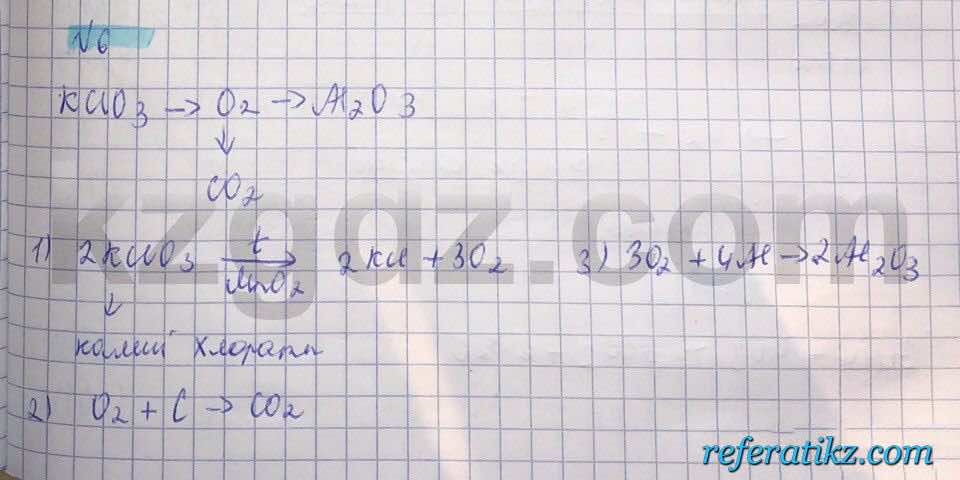 №6
KClO3 → O2 → Al2O3
↓
CO2
1) 2KClO3 t→ MnO2 2KCl + 3O2 3) 3O2 + 4Al → 2Al2O3
↓
калий хлораты
2) O2 + C → CO2
kzgdz.com
referatikz.com